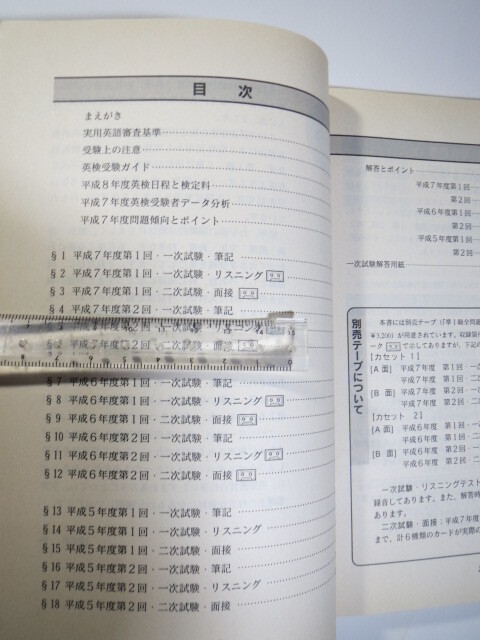 目 次
まえがき
実用英語審査基準
受験上の注意
英検受験ガイド
平成8年度英検日程と検定料
平成7年度英検受験者データ分析
平成7年度問題傾向とポイント
§1 平成7年度第1回・一次試験・筆記
§2 平成7年度第1回・一次試験・リスニング
§3 平成7年度第1回・二次試験・面接
§4 平成7年度第2回・一次試験・筆記
平成7年度第2回・二次試験・面接
§7 平成6年度第1回・一次試験・筆記
§8 平成6年度第1回・一次試験・リスニング
§9 平成6年度第1回・二次試験・面接
§10 平成6年度第2回・一次試験・筆記
§11 平成6年度第2回・一次試験・リスニング
§12 平成6年度第2回・二次試験・面接
§13 平成5年度第1回・一次試験・筆記
§14 平成5年度第1回・一次試験・リスニング
§15 平成5年度第1回・二次試験・面接
§16 平成5年度第2回・一次試験・筆記
§17 平成5年度第2回・一次試験・リスニング
§18 平成5年度第2回・二次試験・面接
解答とポイント
平成7年度第1回
第2回
平成6年度第1回
第2回
平成5年度第1回
第2回
一次試験解答用紙
別売テープについて
本書には別売テープ(「準1級全問題
¥3,200)が用意されています。収録箇
ーク で示してありますが、下記の
[カセット 1]
[A 面] 平成7年度 第1回・一
平成7年度 第1回・二
[B 面] 平成7年度 第2回・一
平成7年度 第2回・二
[カセット 2]
[A 面] 平成6年度 第1回・一
平成6年度 第1回・二
[B 面] 平成6年度 第2回・一
平成6年度 第2回・二
一次試験・リスニングテス
録音してあります。また、解答時
あります。
二次試験・面接:平成7年度
まで、計6種類のカードが実際の